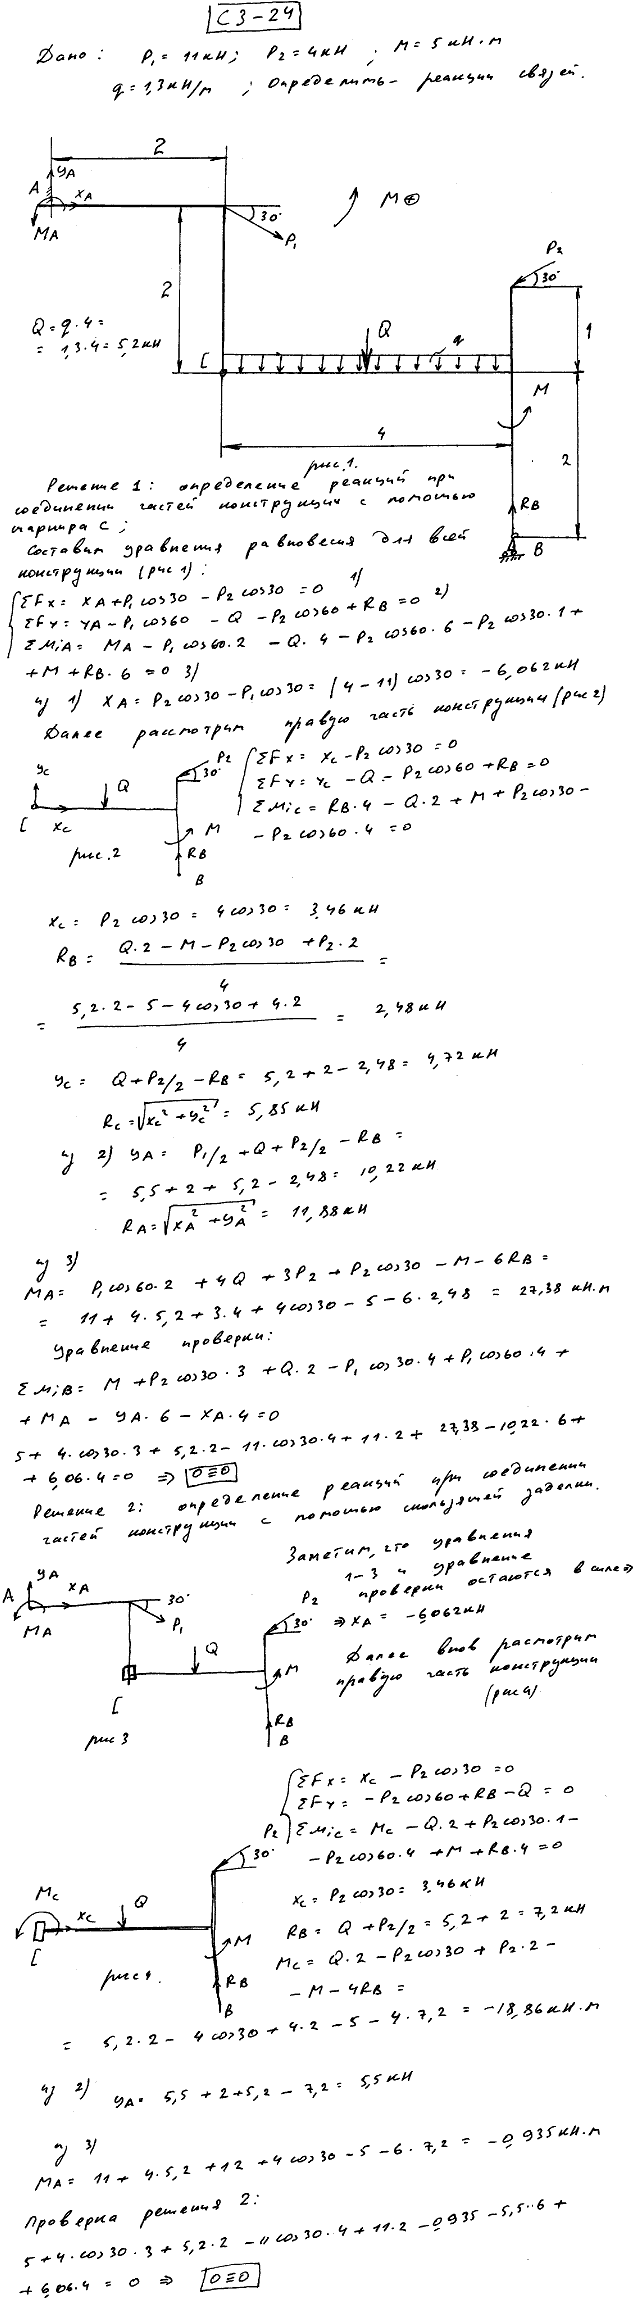 С3-24
Дано: P₁ = 11кН; P₂ = 4кН; M = 5кН·м
q = 1,3кН/м; Определить реакции связей.
2
YA
A
XA
MA
30°
P₁
M⊕
P₂
30°
2
Q = q·4 =
= 1,3·4 = 5,2кН
Q
q
1
C
M
4
2
рис.1.
RB
B
Решение 1: определение реакций при
соединении частей конструкции с помощью
шарнира С;
Составим уравнения равновесия для всей
конструкции (рис 1):
ΣFx = XA + P₁cos30 - P₂cos30 = 0 1)
ΣFy = YA - P₁cos60 - Q - P₂cos60 + RB = 0 2)
ΣMiA = MA - P₁cos60·2 - Q·4 - P₂cos60·6 - P₂cos30·1 +
+ M + RB·6 = 0 3)
из 1) XA = P₂cos30 - P₁cos30 = (4-11)cos30 = -6,062кН
Далее рассмотрим правую часть конструкции (рис 2)
P₂
30°
YC
Q
C
XC
M
RB
B
рис.2
ΣFx = XC - P₂cos30 = 0
ΣFy = YC - Q - P₂cos60 + RB = 0
ΣMiC = RB·4 - Q·2 + M + P₂cos30 -
- P₂cos60·4 = 0
XC = P₂cos30 = 4cos30 = 3,46кН
RB = Q·2 - M - P₂cos30 + P₂·2 / 4 =
= 5,2·2 - 5 - 4cos30 + 4·2 / 4 = 2,48кН
YC = Q + P₂/2 - RB = 5,2 + 2 - 2,48 = 4,72кН
RC = √XC² + YC² = 5,85кН
из 2) YA = P₁/2 + Q + P₂/2 - RB =
= 5,5 + 2 + 5,2 - 2,48 = 10,22кН
RA = √XA² + YA² = 11,88кН
из 3)
MA = P₁cos60·2 + 4Q + 3P₂ + P₂cos30 - M - 6RB =
= 11 + 4·5,2 + 3·4 + 4cos30 - 5 - 6·2,48 = 27,38кН·м
Уравнение проверки:
ΣMiB = M + P₂cos30·3 + Q·2 - P₁cos30·4 + P₁cos60·4 +
+ MA - YA·6 - XA·4 = 0
5 + 4·cos30·3 + 5,2·2 - 11·cos30·4 + 11·2 + 27,38 - 10,22·6 +
+ 6,06·4 = 0 ⇒ 0≡0
Решение 2: определение реакций при соединении
частей конструкции с помощью скользящей заделки.
Заметим, что уравнения
1-3 и уравнение
проверки остаются в силе ⇒
⇒ XA = -6,062кН
Далее вновь расмотрим
правую часть конструкции
(рис4).
YA
A
XA
MA
30°
P₁
P₂
30°
Q
M
C
RB
B
рис 3
ΣFx = XC - P₂cos30 = 0
ΣFy = -P₂cos60 + RB - Q = 0
ΣMiC = MC - Q·2 + P₂cos30·1 -
- P₂cos60·4 + M + RB·4 = 0
XC = P₂cos30 = 3,46кН
RB = Q + P₂/2 = 5,2 + 2 = 7,2кН
MC = Q·2 - P₂cos30 + P₂·2 -
- M - 4RB =
P₂
30°
MC
Q
XC
C
M
RB
B
рис4.
= 5,2·2 - 4cos30 + 4·2 - 5 - 4·7,2 = -18,86кН·м
из 2) YA = 5,5 + 2 + 5,2 - 7,2 = 5,5кН
из 3)
MA = 11 + 4·5,2 + 12 + 4cos30 - 5 - 6·7,2 = -0,935кН·м
Проверка решения 2:
5 + 4·cos30·3 + 5,2·2 - 11cos30·4 + 11·2 - 0,935 - 5,5·6 +
+ 6,06·4 = 0 ⇒ 0≡0